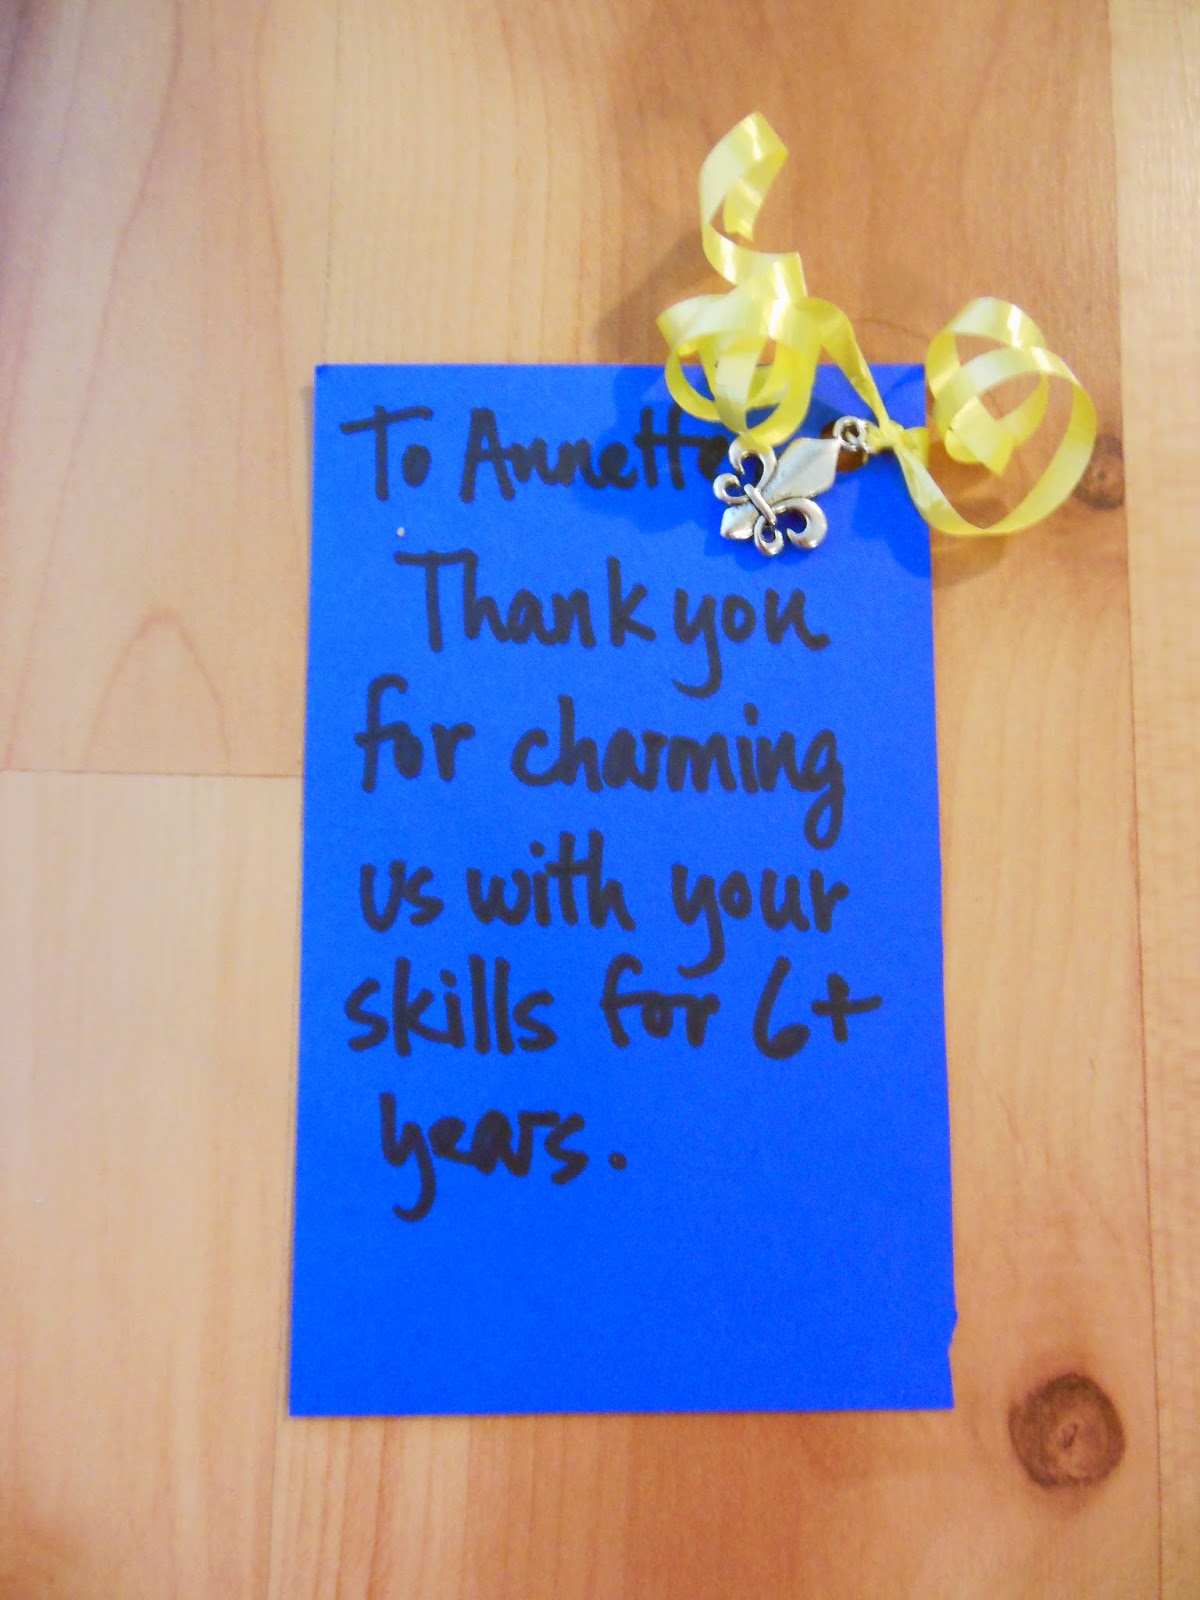 To Annette
Thank you
for charming
us with your
skills for 6+
years.